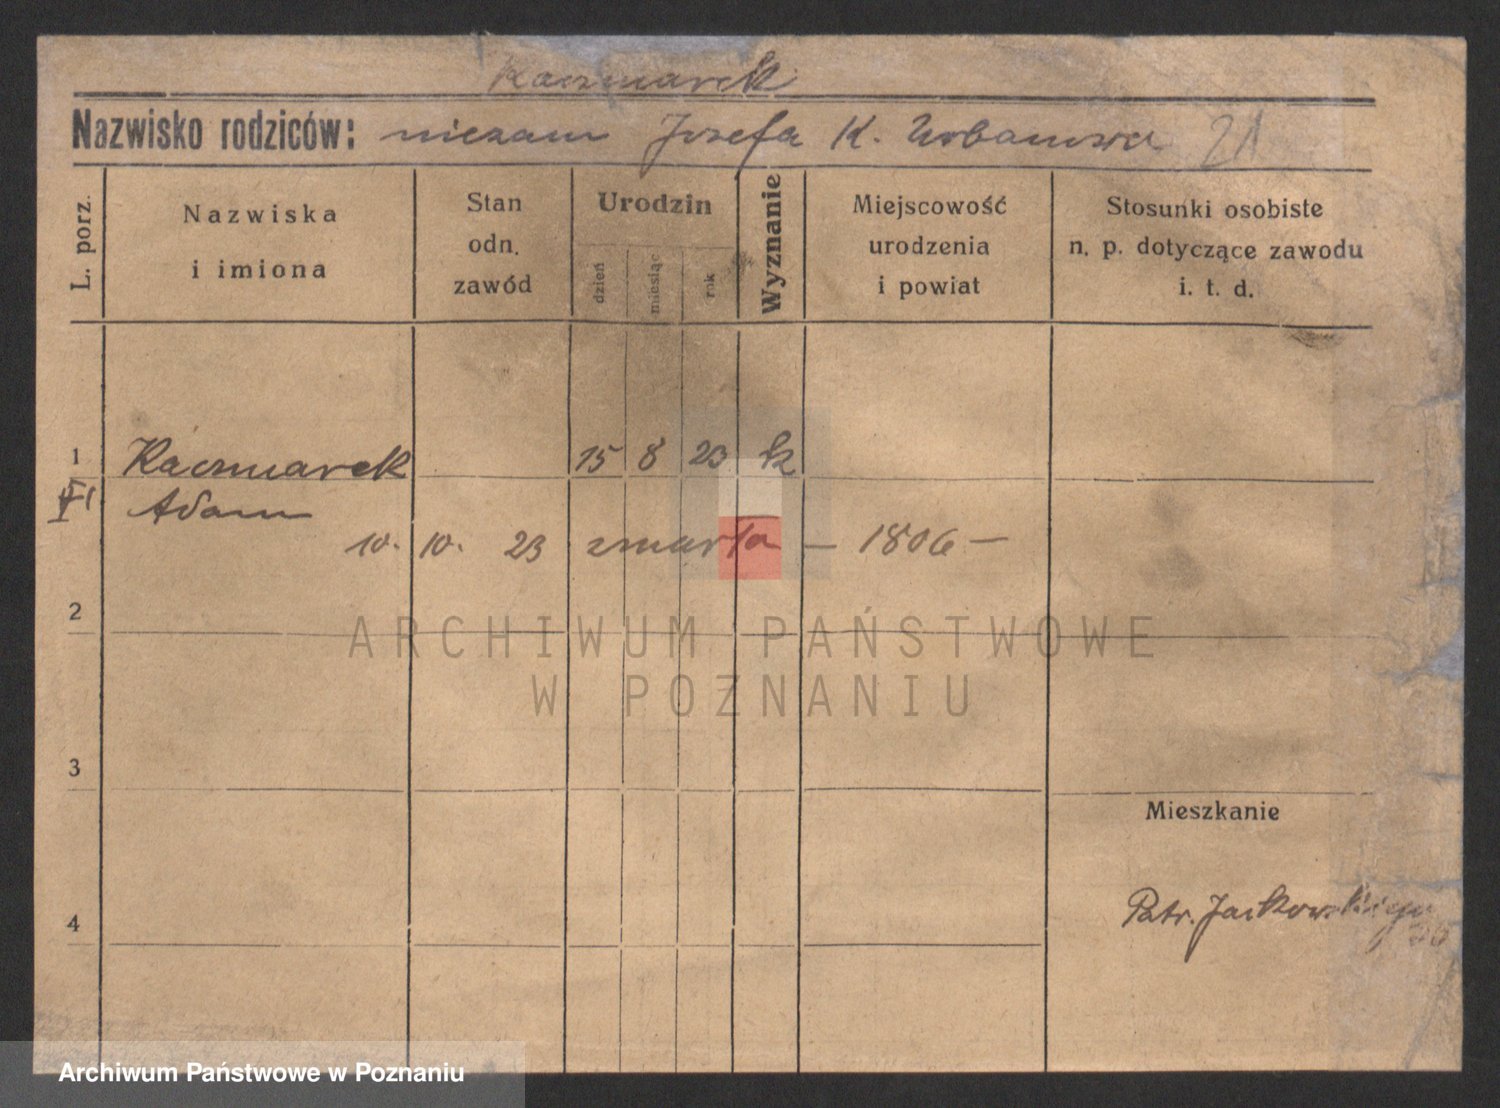 Kaczmarek
Nazwisko rodziców: niezam Józefa K. Urbanowa 21
L. porz.
Nazwiska
i imiona
Stan
odn.
zawód
Urodzin
dzień
miesiąc
rok
Wyznanie
Miejscowość
urodzenia
i powiat
Stosunki osobiste
n. p. dotyczące zawodu
i. t. d.
1 Kaczmarek 15 8 23 k
Adam
10. 10. 23 zmarła – 1806 –
2
ARCHIWUM PAŃSTWOWE
W POZNANIU
3
Mieszkanie
4
Patr. Jackowskiego
Archiwum Państwowe w Poznaniu